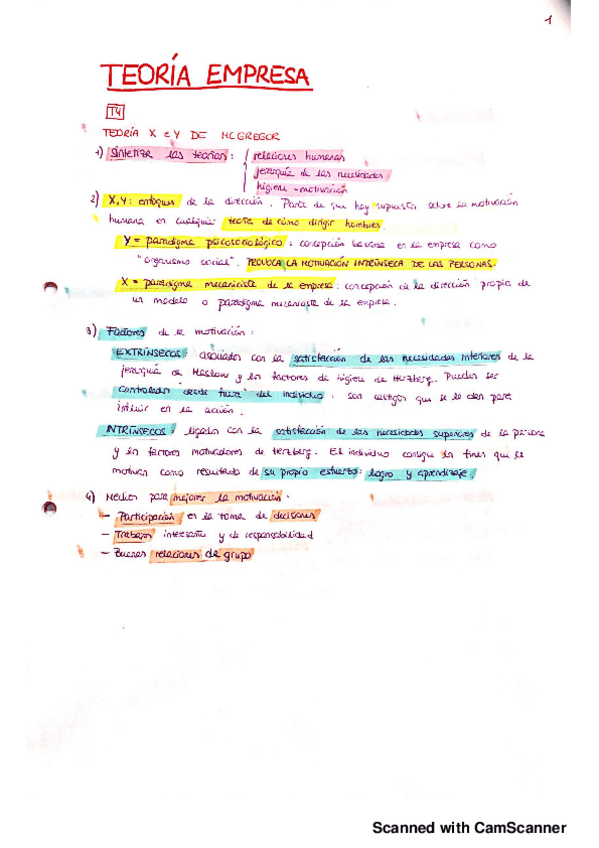 1
TEORÍA EMPRESA
T4
TEORÍA X e Y DE MCGREGOR
1) Sintetiza las teorías: relaciones humanas
jerarquía de las necesidades
higiene-motivación
2) X, Y: enfoques de la dirección. Parte de que hay supuestos sobre la motivación
humana en cualquier teoría de cómo dirigir hombres.
Y = paradigma psicosociológico: concepción basada en la empresa como
"organismo social". PROVOCA LA MOTIVACIÓN INTRÍNSECA DE LAS PERSONAS.
X = paradigma mecanicista de la empresa: concepción de la dirección propia de
un modelo o paradigma mecanicista de la empresa.
3) Factores de la motivación:
EXTRÍNSECOS: asociados con la satisfacción de las necesidades inferiores de la
jerarquía de Maslow y los factores de higiene de Herzberg. Pueden ser
controlados "desde fuera" del individuo: son que se le dan para
influir en la acción.
INTRÍNSECOS: ligados con la satisfacción de las necesidades superiores de la persona
y los factores motivadores de Herzberg. El individuo consigue los fines que le
motivan como resultado de su propio esfuerzo: logro y aprendizaje.
4) Medios para mejorar la motivación.
- Participación en la toma de decisiones
- Trabajos interesante y de responsabilidad
- Buenas relaciones de grupo
Scanned with CamScanner